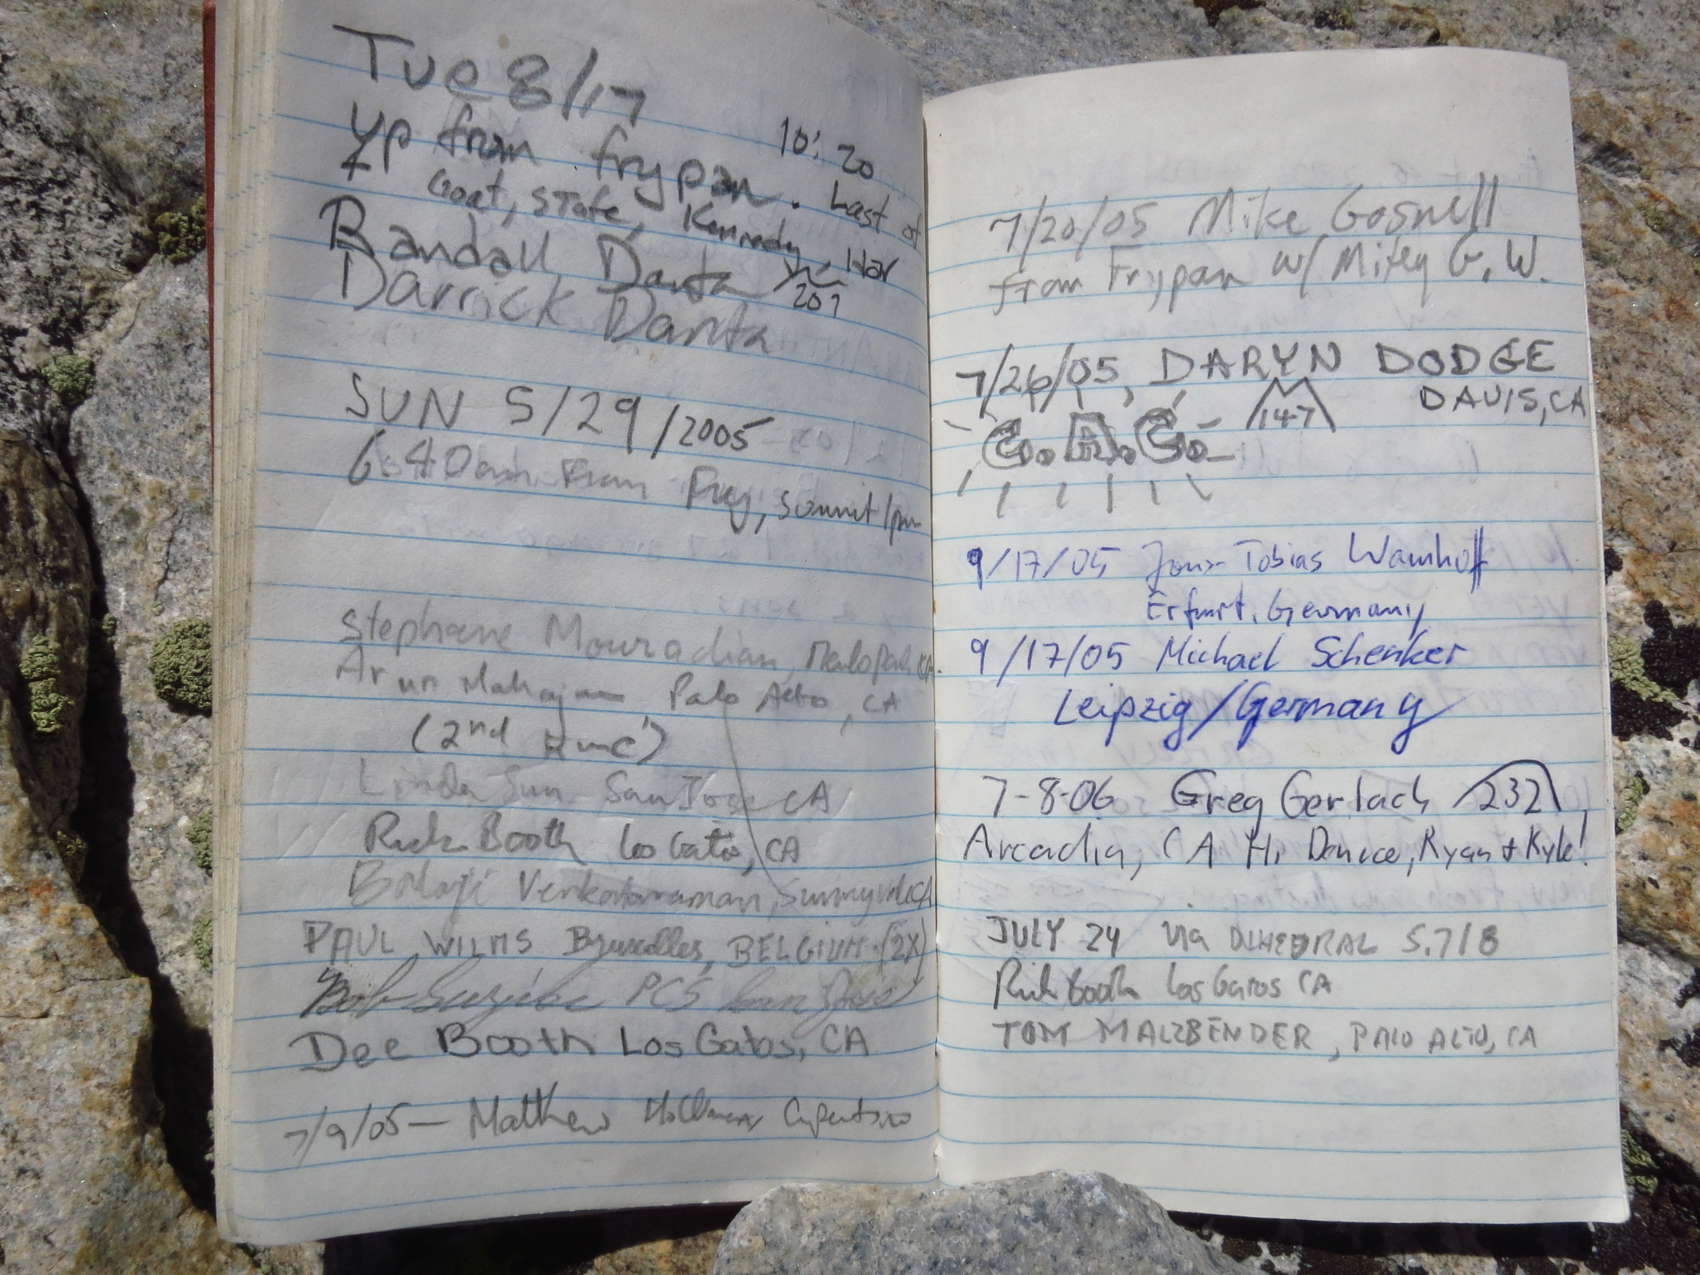 Tue 8/17
Up from frypan. 10:20
Last of
Goat, State, Kennedy, Har
Randall Danta 207
Darrick Danta
SUN 5/29/2005
6:40am from Fry, summit 1pm
Stephane Mouradian, Menlo Park, CA.
Arun Mahajan Palo Alto, CA
(2nd time)
Linda Sun San Jose CA
Rick Booth Los Gatos, CA
Balaji Venkatraman, Sunnyvale, CA
PAUL WILMS Bruxelles, BELGIUM (2X)
Bob PCS San Jose
Dee Booth Los Gatos, CA
7/9/05 — Matthew Cupertino
7/20/05 Mike Gosnell
from Frypan w/ Mitey G. W.
7/26/05, DARYN DODGE
147 DAVIS, CA
C.A.C.
9/17/05 Jons-Tobias Wamhoff
Erfurt, Germany
9/17/05 Michael Schenker
Leipzig/Germany
7-8-06 Greg Gerlach 232
Arcadia, CA Hi Denice, Ryan + Kyle!
JULY 24 via DIHEDRAL 5.7/8
Rick Booth Los Gatos CA
TOM MALZBENDER, PALO ALTO, CA